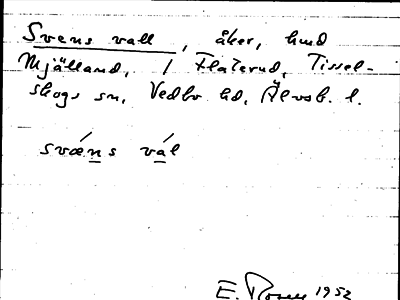 Svens vall, åker, hmd
Mjälland, 1 Flaterud, Tissel-
skogs sn, Vedbo hd, Älvsb. l.
svæns val
E. Rosen 1952